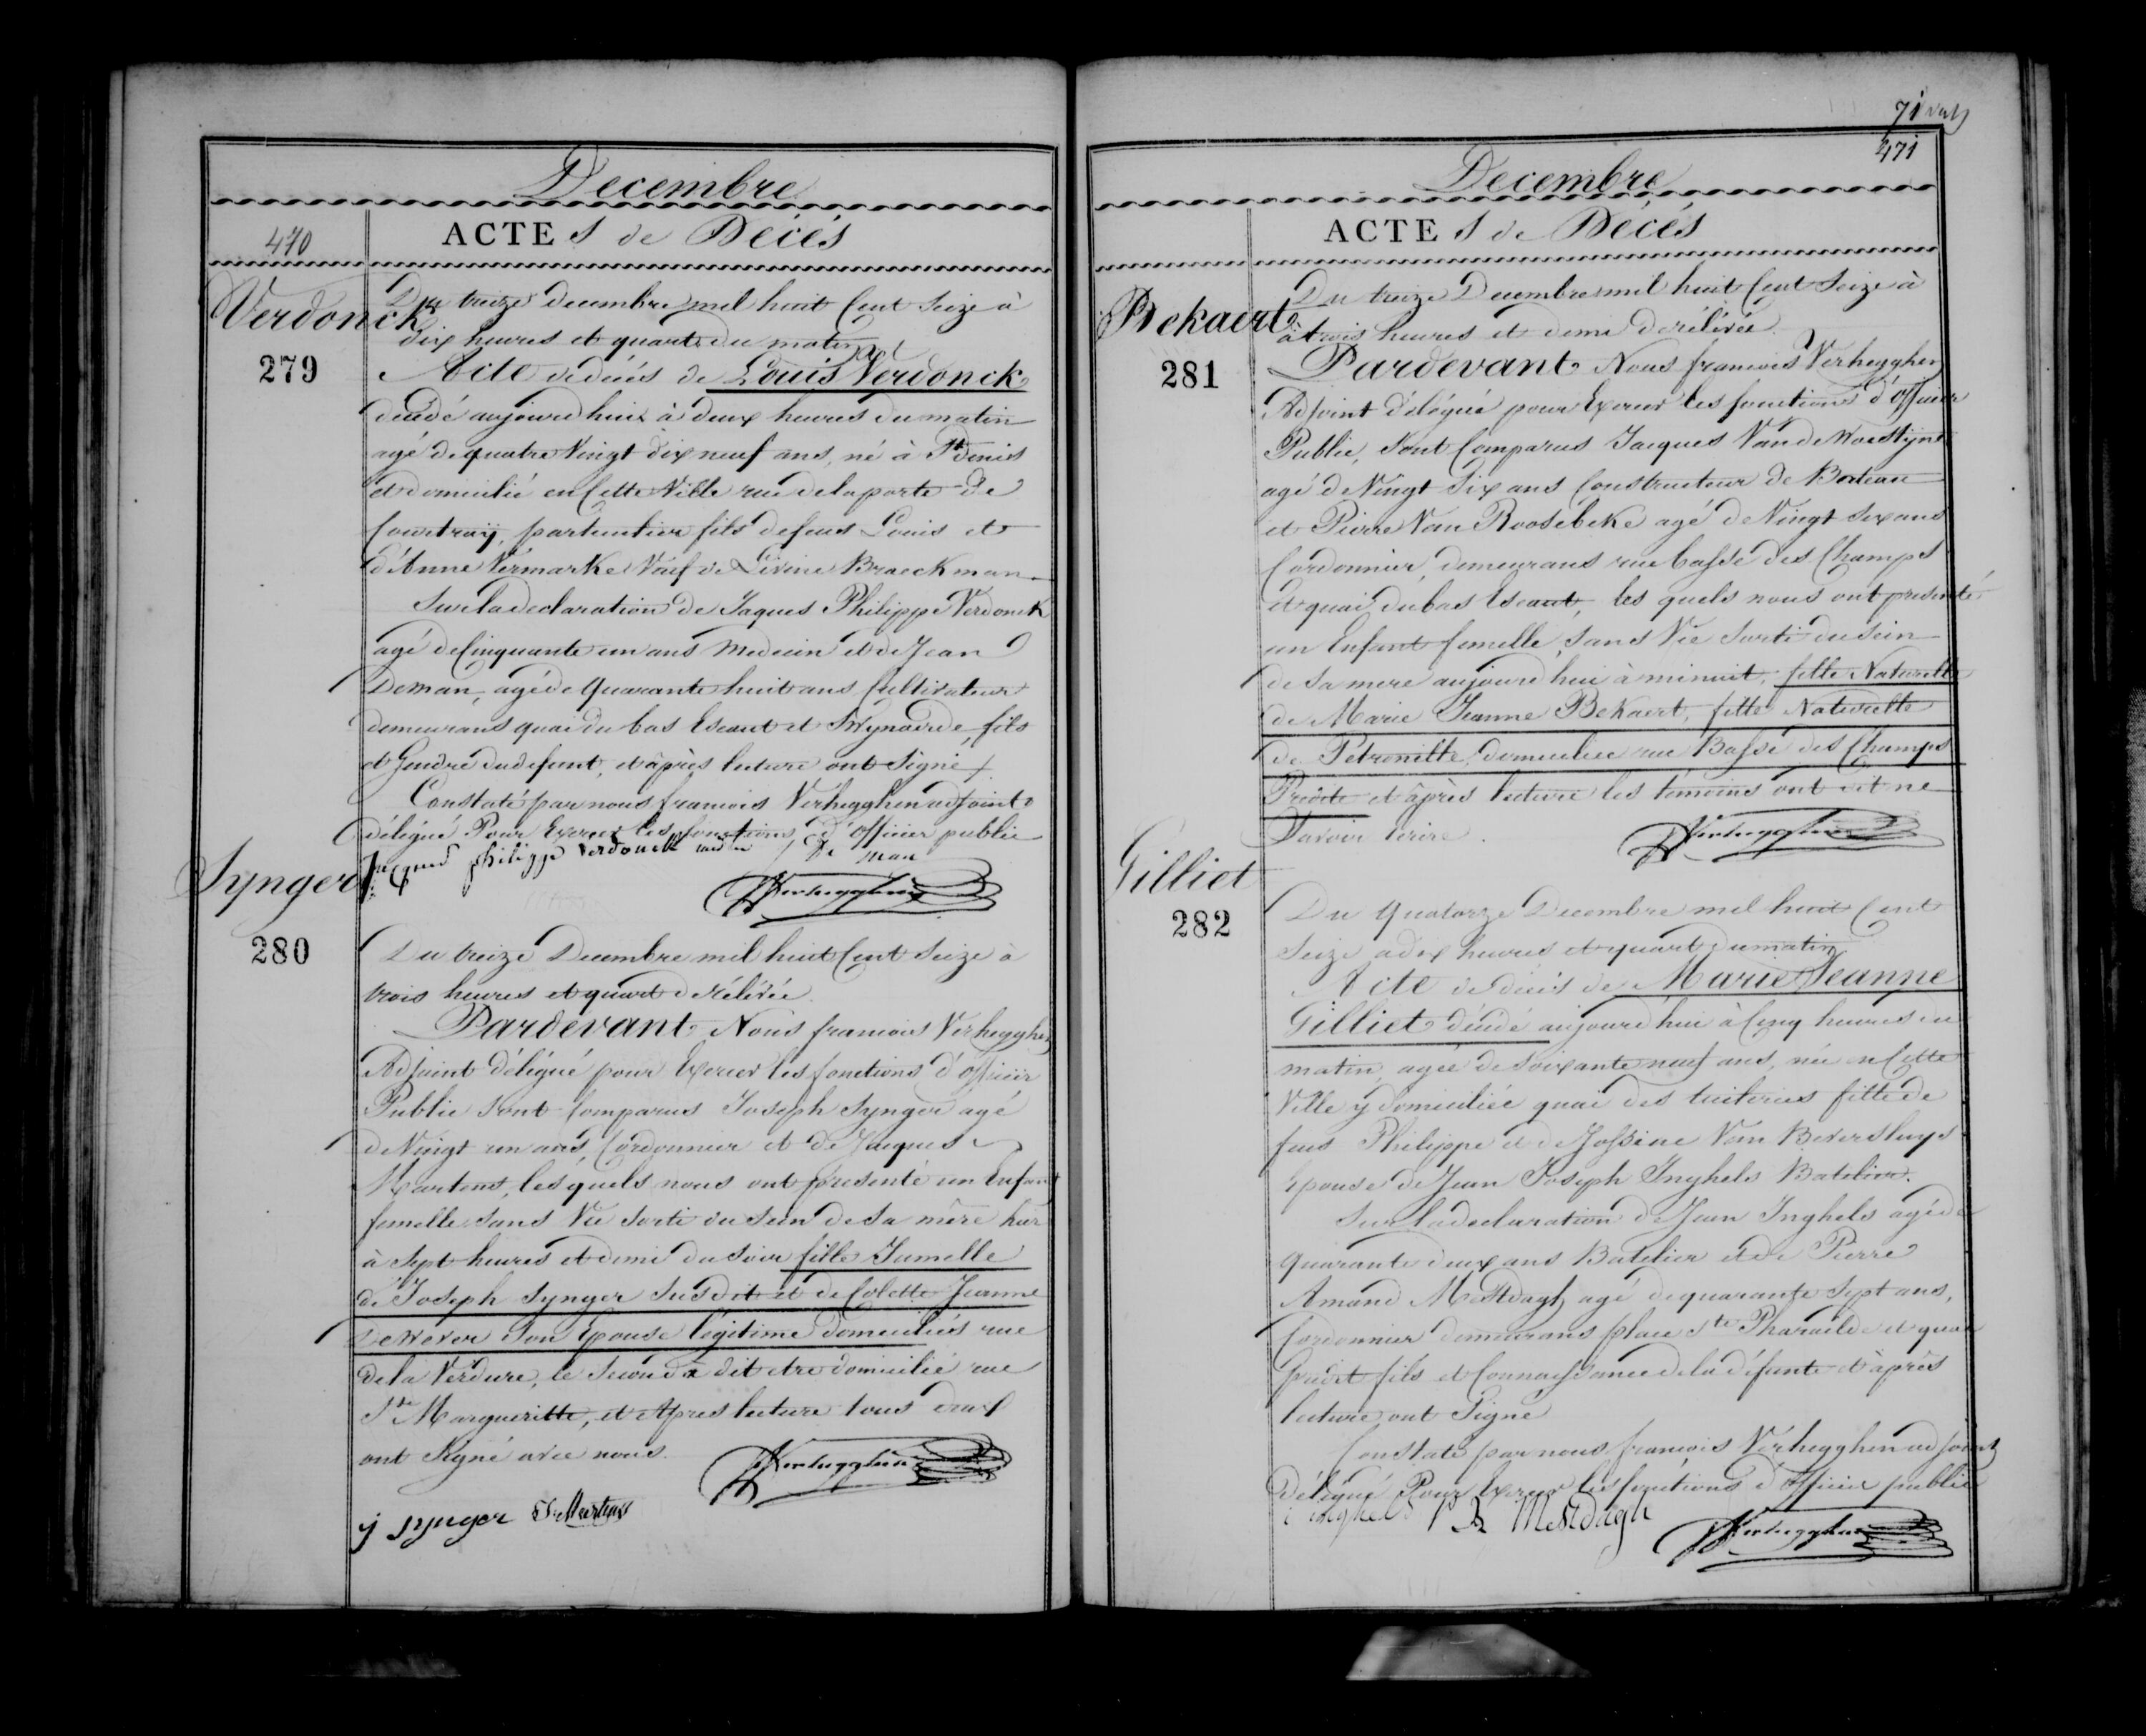 Decembre
470
ACTES de Décès
Verdonck
279
Du treize decembre mil huit Cent Seize à
dix heures et quart du matin
Acte de décés de Louis Verdonck
décédé aujourd'hui à deux heures du matin
agé de quatre Vingt dix neuf ans, né à St Denis
et domicilié en Cette Ville rue de la porte de
Courtraij, particulier fils de feus Louis et
d'Anne Vermarke Veuf de Livine Braeckman
Sur la declaration de Jaques Philippe Verdonck
agé de Cinquante un ans Medecin et de Jean
Deman, agé de Quarante huit ans Cultivateur
demeurans quai du bas Escaut et Swynaerde, fils
et Gendre du defunt, et àprès lecture ont Signé
Constaté par nous francois Verhegghen adjoint
délégué Pour Exercer les fonctions d'officier public
Jacques philippe verdonck De man
Verhegghen
Synger
280
Du treize Decembre mil huit Cent Seize à
trois heures et quart de rélévée
Pardevant Nous francois Verhegghen
Adjoint délégué pour Exercer les fonctions d'officier
Public Sont Comparus Joseph Synger agé
de Vingt un ans, Cordonnier et de Jacques
Martens, les quels nous ont presenté un Enfant
femelle Sans Vie Sorti du Sein de Sa mère hier
à Sept heures et demi du Soir fille Jumelle
de Joseph Synger Susdit et de Colette Jeanne
Dewever Son Epouse légitime domiciliés rue
de la Verdure, le Second a dit etre domicilié rue
Ste Margueritte, et Apres lecture tous deux
ont Signé avec nous.
Verhegghen
j synger Martens
71
471
Decembre
ACTES de Décés
Bekaert
281
Du treize Decembre mil huit Cent Seize à
à trois heures et demi de rélévée
Pardevant Nous francois Verhegghen
Adjoint délégué pour Exercer les fonctions d'Officier
Public, Sont Comparus Jacques Van de Woestijne
agé de Vingt Six ans Constructeur de Bateau
et Pierre Van Roosebeke agé de Vingt Six ans
Cordonnier, demeurans rue basse des Champs
et quai du bas Escaut, les quels nous ont presenté
un Enfant femelle Sans Vie Sorti du Sein
de Sa mere aujourd'hui à minuit, fille Naturelle
de Marie Jeanne Bekaert, fille Naturelle
de Petronille, domiciliée rue Basse des Champs
Prédite et àprès lecture les témoins ont dit ne
Savoir Ecrire.
Verhegghen
Gilliet
282
Du Quatorze Decembre mil huit Cent
Seize a dix heures et quart du matin
Acte de décés de Marie Jeanne
Gilliet décédé aujourd'hui à Cinq heures du
matin, agée de Soixante neuf ans, née en Cette
Ville y domiciliée quai des tuileries fille de
feus Philippe et de Jossine Van Beversluys
Epouse de Jean Joseph Inghels Batelier.
Sur la declaration de Jean Inghels agé de
Quarante deux ans Batelier et de Pierre
Amand Mestdagh agé de quarante Sept ans,
Cordonnier demeurans place Ste Pharailde et quai
Prédit fils et Connaissance de la défunte et àprès
lecture ont Signé
Constaté par nous francois Verhegghen adjoint
Délégué Pour Exercer les fonctions d'officier public
j inghels P A Mestdagh
Verhegghen